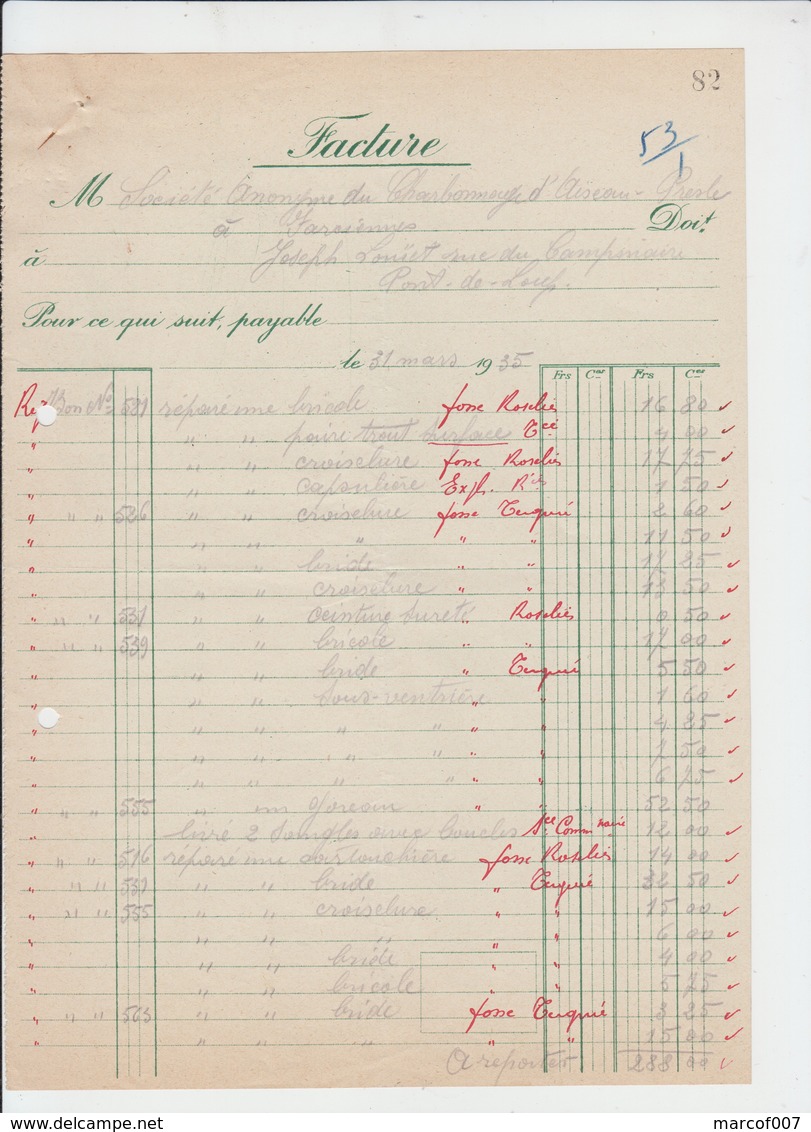 82
Facture
53/1
M Société Anonyme du Charbonnage d'Aiseau-Presle
à Farciennes Doit
à Joseph Louset rue du Campinaire
Pont-de-Loup.
Pour ce qui suit, payable
le 31 mars 1935
Frs Ces Frs Ces
Bon No 581 réparé une bricole fosse Roselies 16 80
" " " paire trait surface 4 00
" " " croiselure fosse Roselies 17 75
" " " capsulière 1 50
" " " 526 " " croiselure fosse Tergnié 2 60
" " " " " " 11 50
" " " bride " " 17 25
" " " croiselure " " 13 50
" " " 531 " " ceinture sureté " Roselies 0 50
" " " 539 " " bricole " " 17 00
" " " bride " Tergnié 5 50
" " " sous-ventrière " " 1 60
" " " " " " " 4 25
" " " " " " " 7 50
" " " " " " " 6 75
" " " 555 " un goreau " " 52 50
" livré 2 sangles avec boucles 12 00
" " " 516 réparé une cartouchière fosse Roselies 14 00
" " " 531 " " bride " Tergnié 32 50
" " " 555 " " croiselure " " 15 00
" " " " " " 6 00
" " " bride " " 4 00
" " " bricole " " 5 75
" " " 563 " " bride fosse Tergnié 3 25
" " " " " " 15 00
A reporter 288 00
marcof007